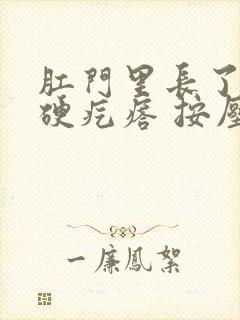 肛門里長了
硬疙瘩 按壓
一廉鳳絮